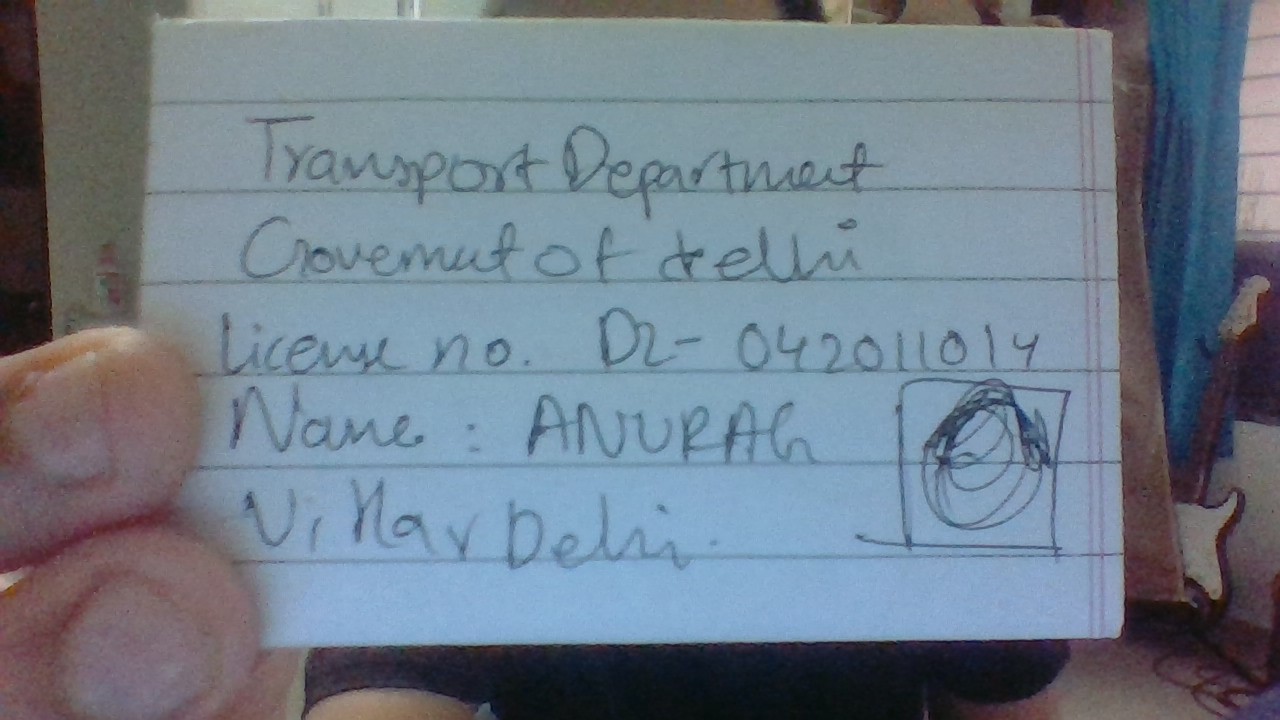 Transport Department
Government of delhi
License no. DL- 042011014
Name : ANURAG
Vihar Delhi.